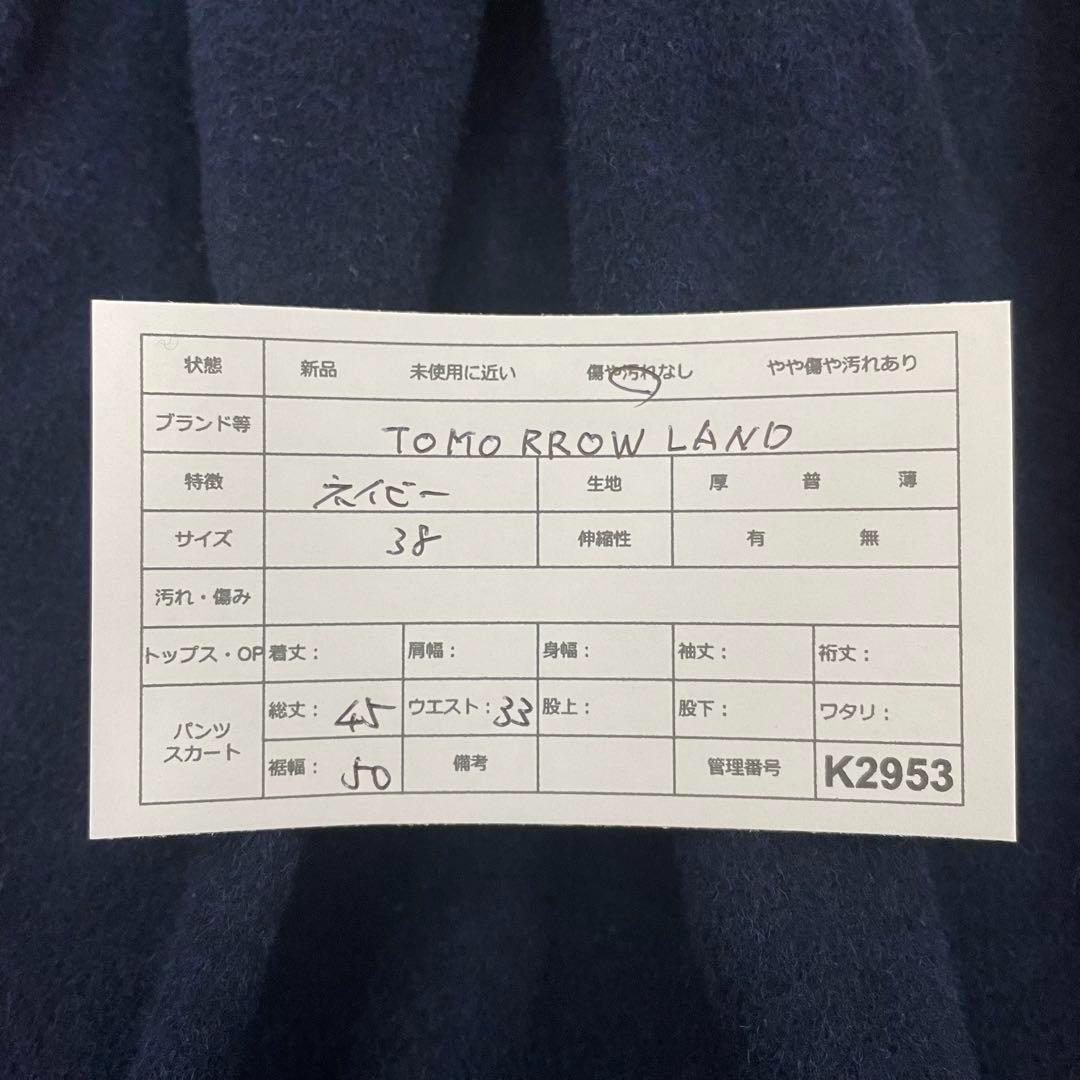 状態 新品 未使用に近い 傷や汚れなし やや傷や汚れあり
ブランド等 TOMORROW LAND
特徴 ネイビー 生地 厚 普 薄
サイズ 38 伸縮性 有 無
汚れ・傷み
トップス・OP 着丈: 肩幅: 身幅: 袖丈: 裄丈:
パンツ スカート 総丈: 45 ウエスト: 33 股上: 股下: ワタリ:
裾幅: 50 備考 管理番号 K2953